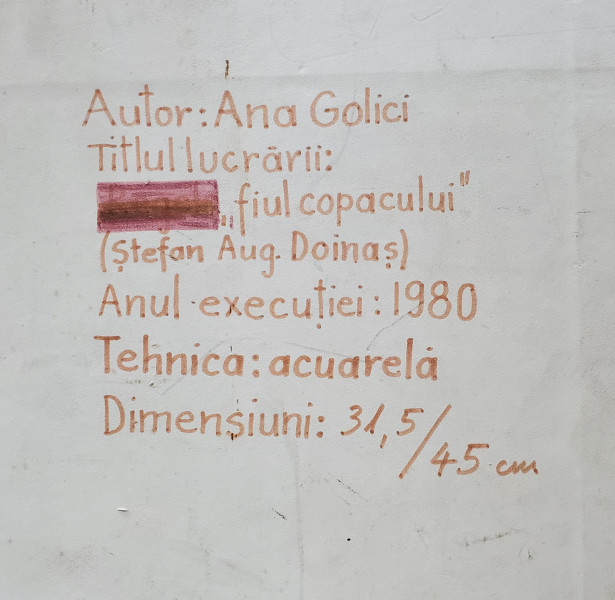 Autor: Ana Golici
Titlul lucrării:
„fiul copacului"
(Ștefan Aug. Doinaș)
Anul execuției: 1980
Tehnica: acuarelă
Dimensiuni: 31,5/45 cm